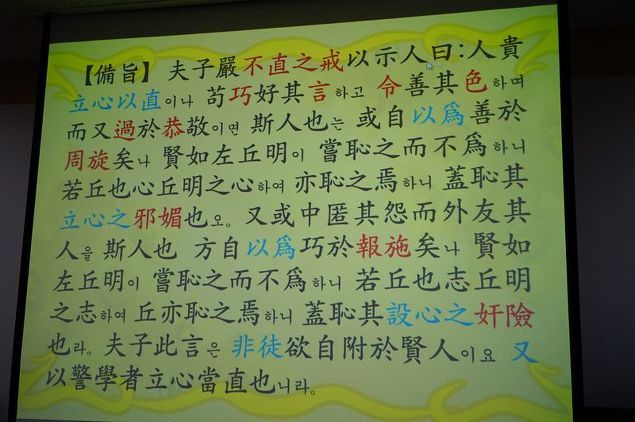 【備旨】 夫子嚴不直之戒以示人曰:人貴
立心以直이나 苟巧好其言하고 令善其色하며
而又過於恭敬이면 斯人也는 或自以爲善於
周旋矣나 賢如左丘明이 嘗恥之而不爲하니
若丘也心丘明之心하여 亦恥之焉하니 蓋恥其
立心之邪媚也오。又或中匿其怨而外友其
人을 斯人也 方自以爲巧於報施矣나 賢如
左丘明이 嘗恥之而不爲하니 若丘也志丘明
之志하여 丘亦恥之焉하니 蓋恥其設心之奸險
也라。夫子此言은 非徒欲自附於賢人이요 又
以警學者立心當直也니라。